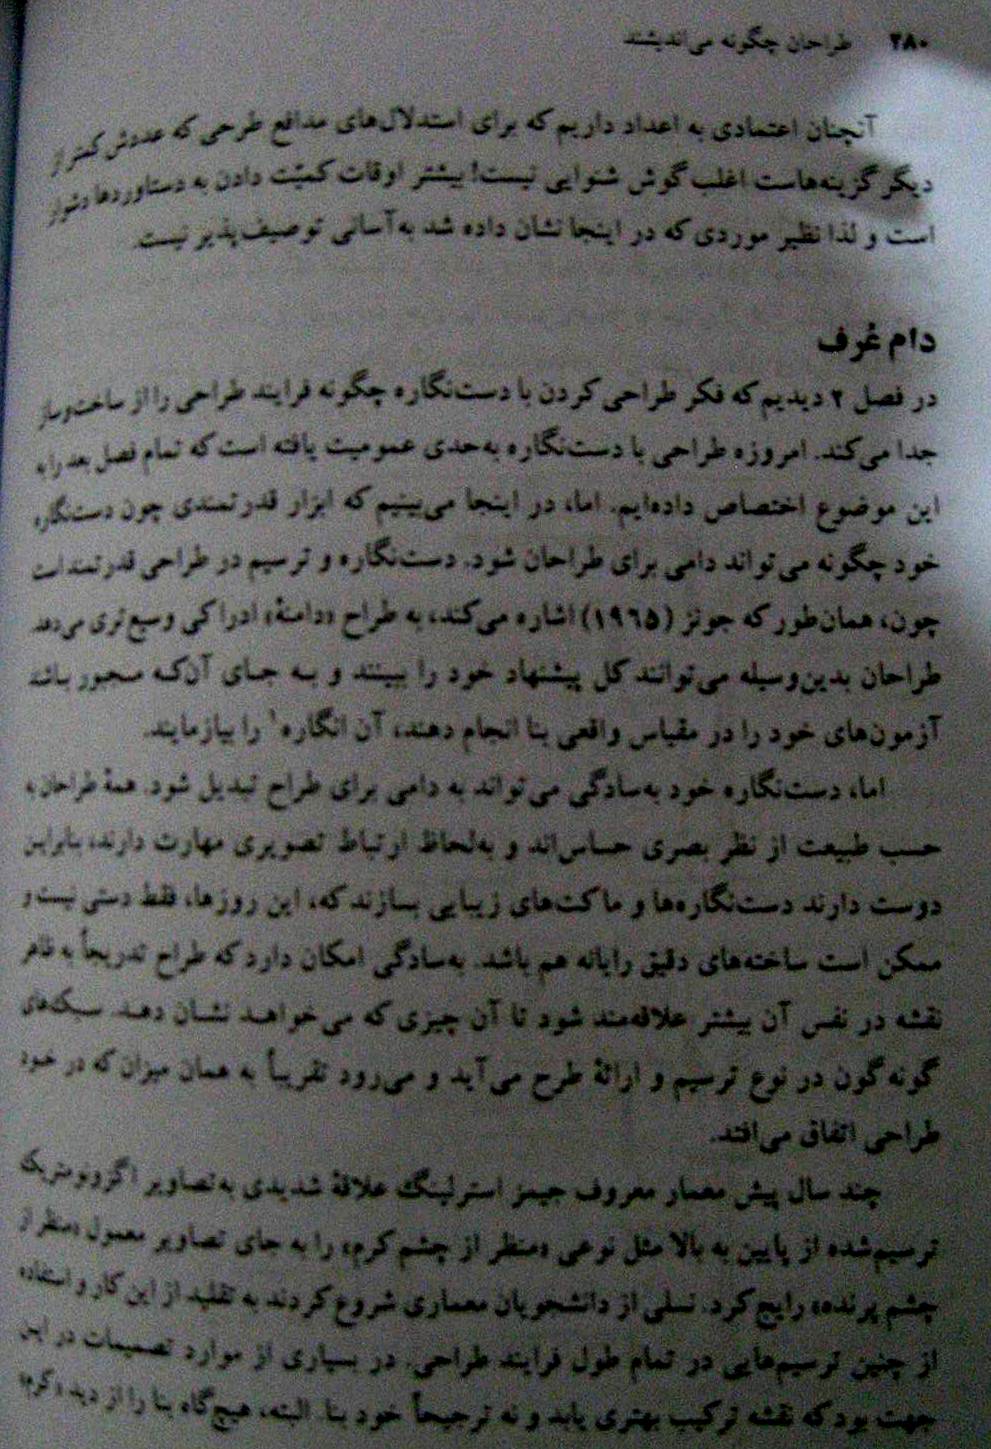 ۲۸۰ طراحان چگونه می‌اندیشند
آنچنان اعتمادی به اعداد داریم که برای استدلال‌های مدافع طرحی که عددش کمتر از
دیگر گزینه‌هاست اغلب گوش شنوایی نیست! بیشتر اوقات کمیّت دادن به دستاوردها دشوار
است و لذا نظیر موردی که در اینجا نشان داده شد به‌آسانی توصیف‌پذیر نیست.
دام عُرف
در فصل ۲ دیدیم که فکر طراحی کردن با دست‌نگاره چگونه فرایند طراحی را از ساخت‌وساز
جدا می‌کند. امروزه طراحی با دست‌نگاره به‌حدی عمومیت یافته است که تمام فصل بعد را به
این موضوع اختصاص داده‌ایم. اما، در اینجا می‌بینیم که ابزار قدرتمندی چون دست‌نگاره
خود چگونه می‌تواند دامی برای طراحان شود. دست‌نگاره و ترسیم در طراحی قدرتمند است
چون، همان‌طور که جونز (۱۹۶۵) اشاره می‌کند، به طراح «دامنهٔ» ادراکی وسیع‌تری می‌دهد.
طراحان بدین‌وسیله می‌توانند کل پیشنهاد خود را ببینند و به جای آن‌که مجبور باشند
آزمون‌های خود را در مقیاس واقعی بنا انجام دهند، آن انگاره۱ را بیازمایند.
اما، دست‌نگاره خود به‌سادگی می‌تواند به دامی برای طراح تبدیل شود. همهٔ طراحان به
حسب طبیعت از نظر بصری حساس‌اند و به‌لحاظ ارتباط تصویری مهارت دارند، بنابراین
دوست دارند دست‌نگاره‌ها و ماکت‌های زیبایی بسازند که، این روزها، فقط دستی نیست و
ممکن است ساخته‌های دقیق رایانه هم باشد. به‌سادگی امکان دارد که طراح تدریجاً به ظاهر
نقشه در نفس آن بیشتر علاقه‌مند شود تا آن چیزی که می‌خواهد نشان دهد. سبک‌های
گونه‌گون در نوع ترسیم و ارائهٔ طرح می‌آید و می‌رود تقریباً به همان میزان که در خود
طراحی اتفاق می‌افتد.
چند سال پیش معمار معروف جیمز استرلینگ علاقهٔ شدیدی به تصاویر اگزونومتریک
ترسیم‌شده از پایین به بالا مثل نوعی «منظر از چشم کرم» را به جای تصاویر معمول «منظر از
چشم پرنده» رایج کرد. نسلی از دانشجویان معماری شروع کردند به تقلید از این کار و استفاده
از چنین ترسیم‌هایی در تمام طول فرایند طراحی. در بسیاری از موارد تصمیمات در این
جهت بود که نقشه ترکیب بهتری یابد و نه ترجیحاً خود بنا. البته، هیچ‌گاه بنا را از دید «کرم»